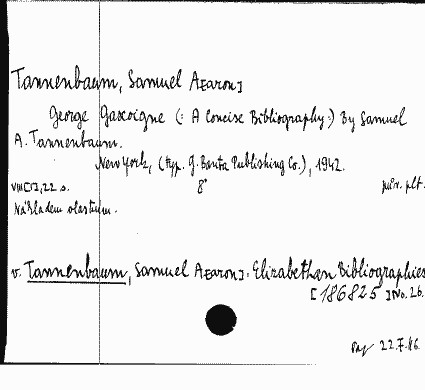 Tannenbaum, Samuel A[aron]
George Gascoigne (: A Concise Bibliography:) By Samuel
A. Tannenbaum.
New York, (typ. G. Banta Publishing Co.), 1942.
VIII[I], 22 s. 8° pův. plt.
Nákladem vlastním.
v. Tannenbaum, Samuel A[aron]: Elizabethan Bibliographies
[186825] No. 26.
22.7.86.